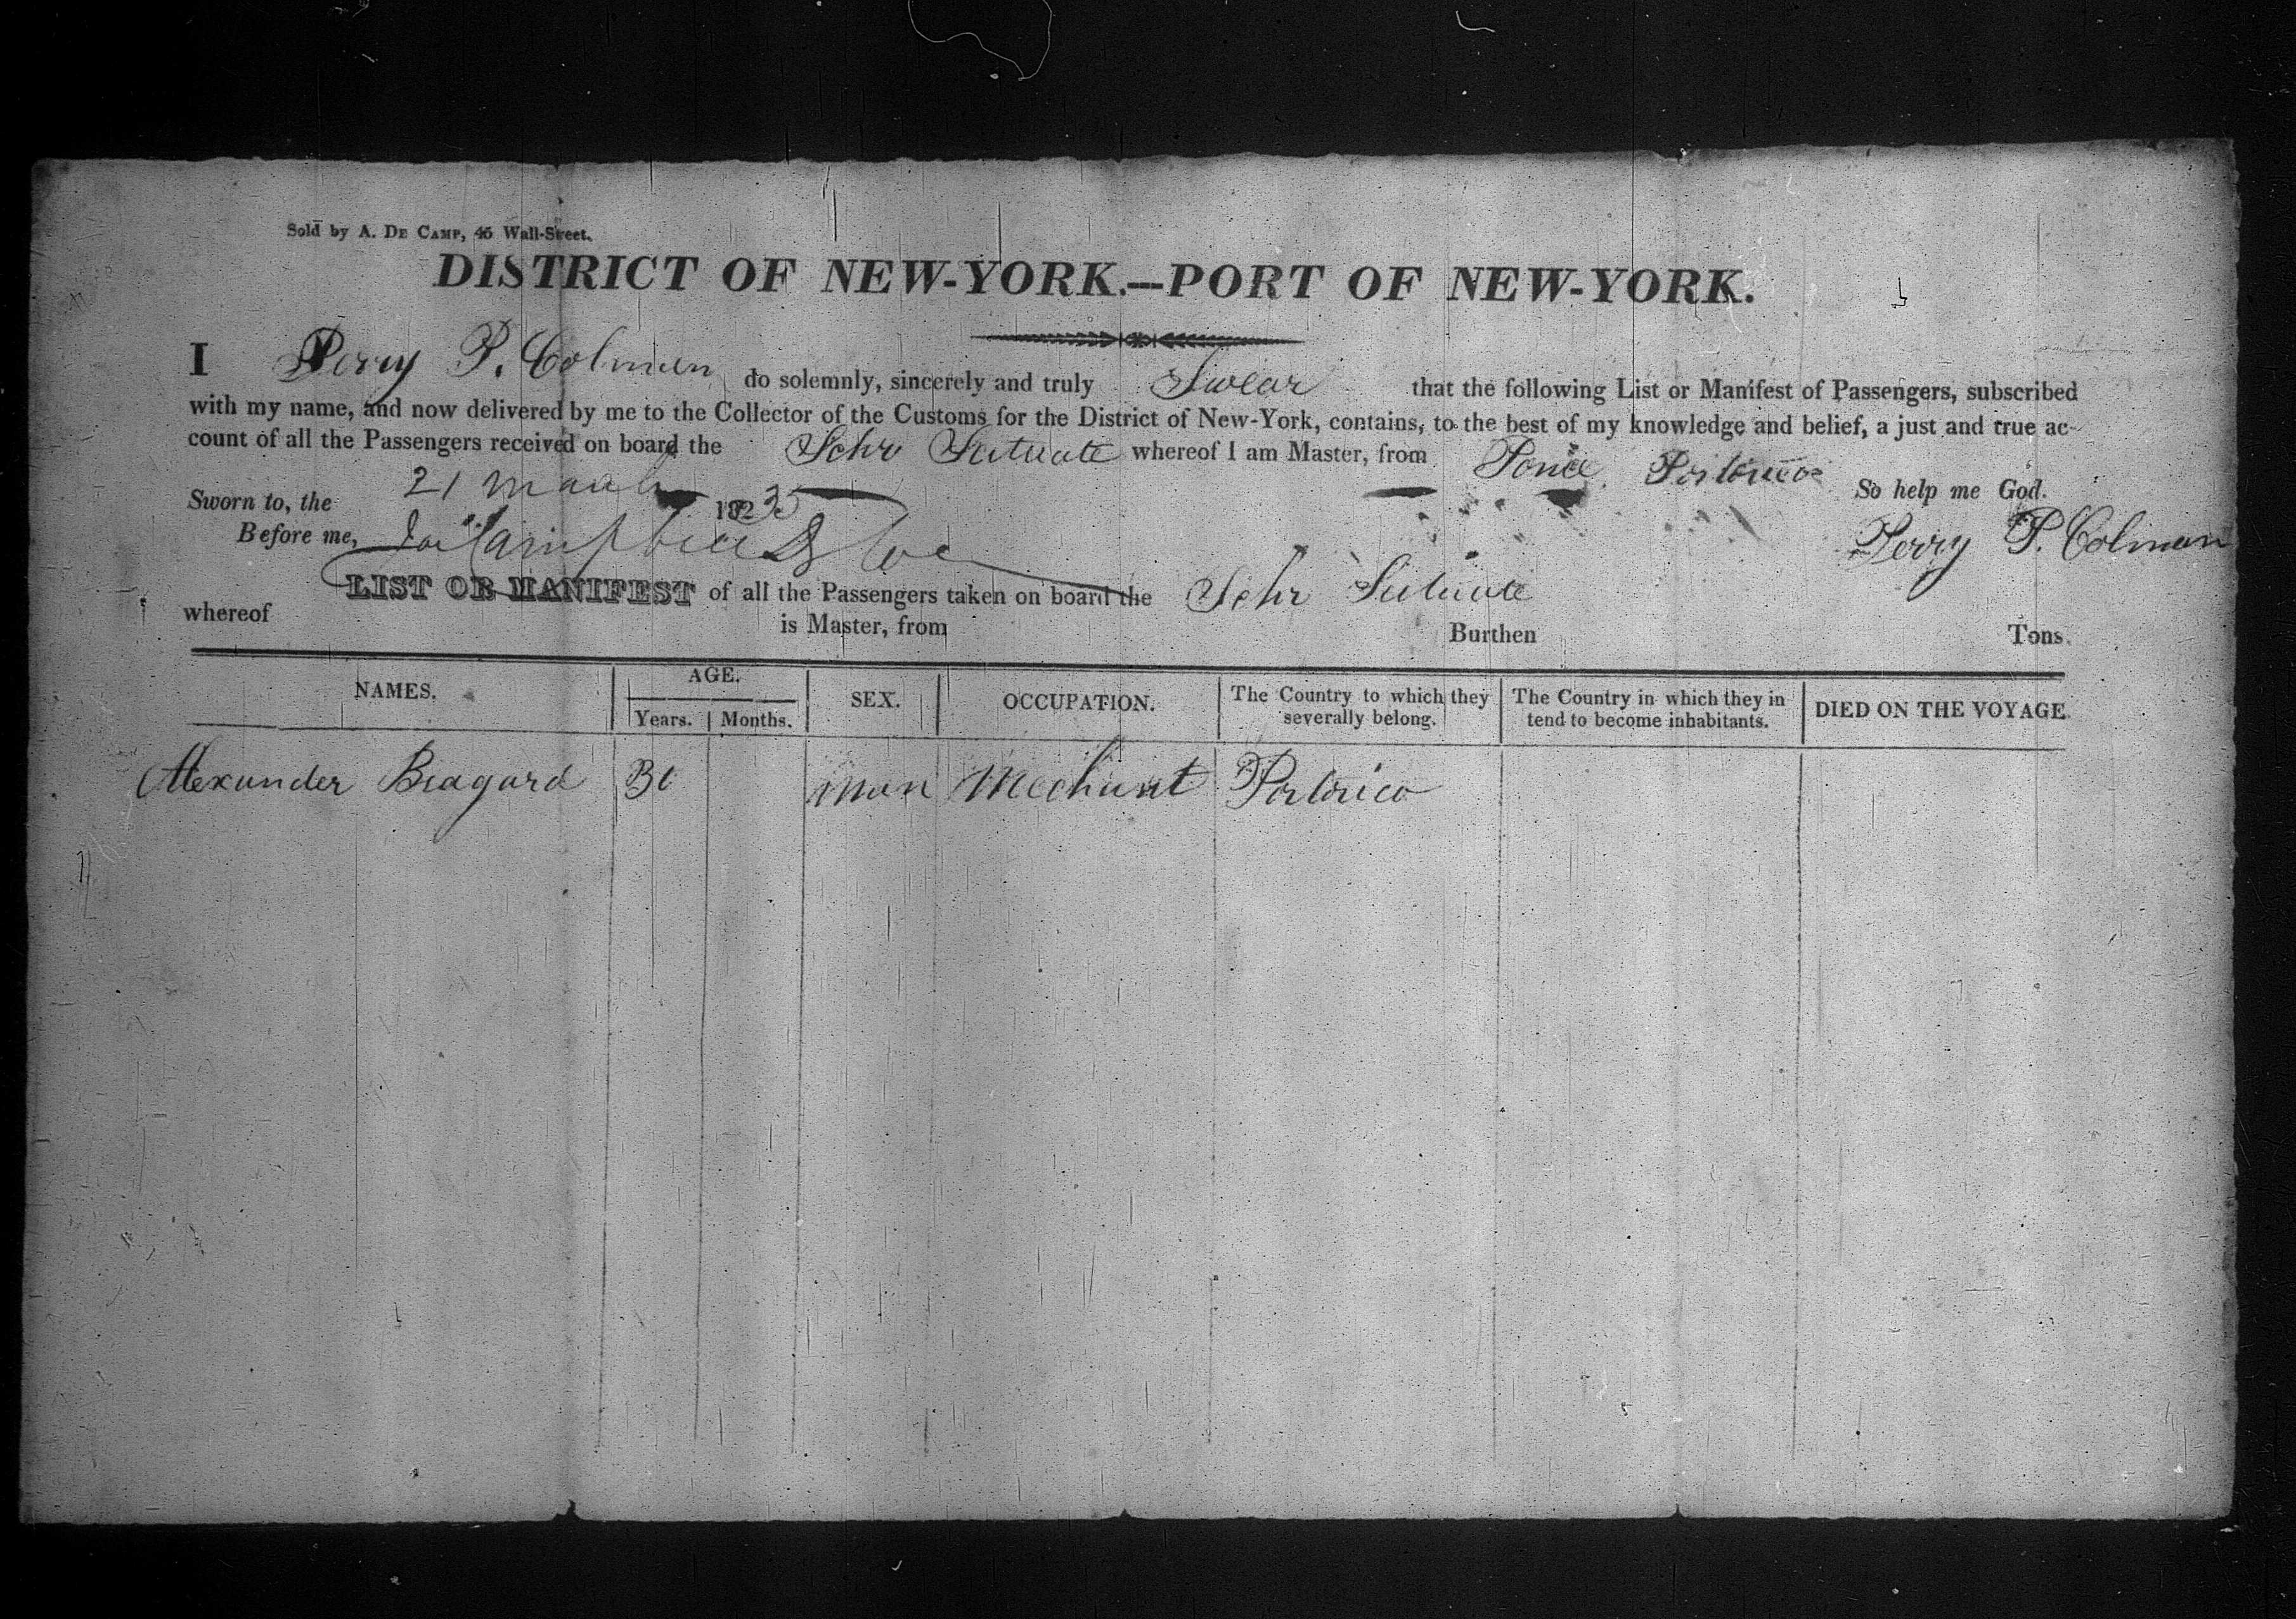 Sold by A. DE CAMP, 45 Wall-Street.
DISTRICT OF NEW-YORK.—PORT OF NEW-YORK.
I Perry P. Colman do solemnly, sincerely and truly Swear that the following List or Manifest of Passengers, subscribed
with my name, and now delivered by me to the Collector of the Customs for the District of New-York, contains, to the best of my knowledge and belief, a just and true ac-
count of all the Passengers received on board the Schr Scituate whereof I am Master, from Ponce Portorico
Sworn to, the 21 March 1823 So help me God.
Before me, Perry P. Colman
LIST OR MANIFEST of all the Passengers taken on board the Schr Scituate
whereof is Master, from Burthen Tons.
NAMES. AGE. SEX. OCCUPATION. The Country to which they severally belong. The Country in which they in tend to become inhabitants. DIED ON THE VOYAGE.
Years. Months.
Alexander Bragard man Mechant Portorico